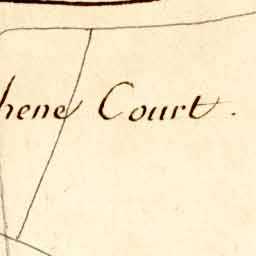 hene Court.